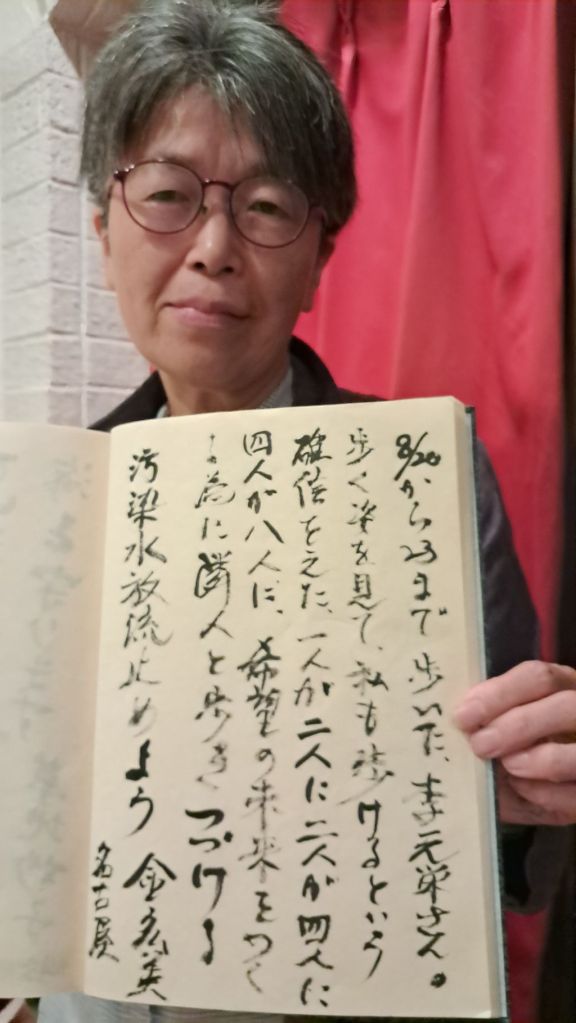 8/20から23まで歩いた、李元栄さん。
歩く姿を見て、私も歩けるという
確信をえた、一人が二人に二人が四人に
四人が八人に、希望の未来をつく
る為に隣人と歩きつづける
汚染水放流止めよう 金
名古屋